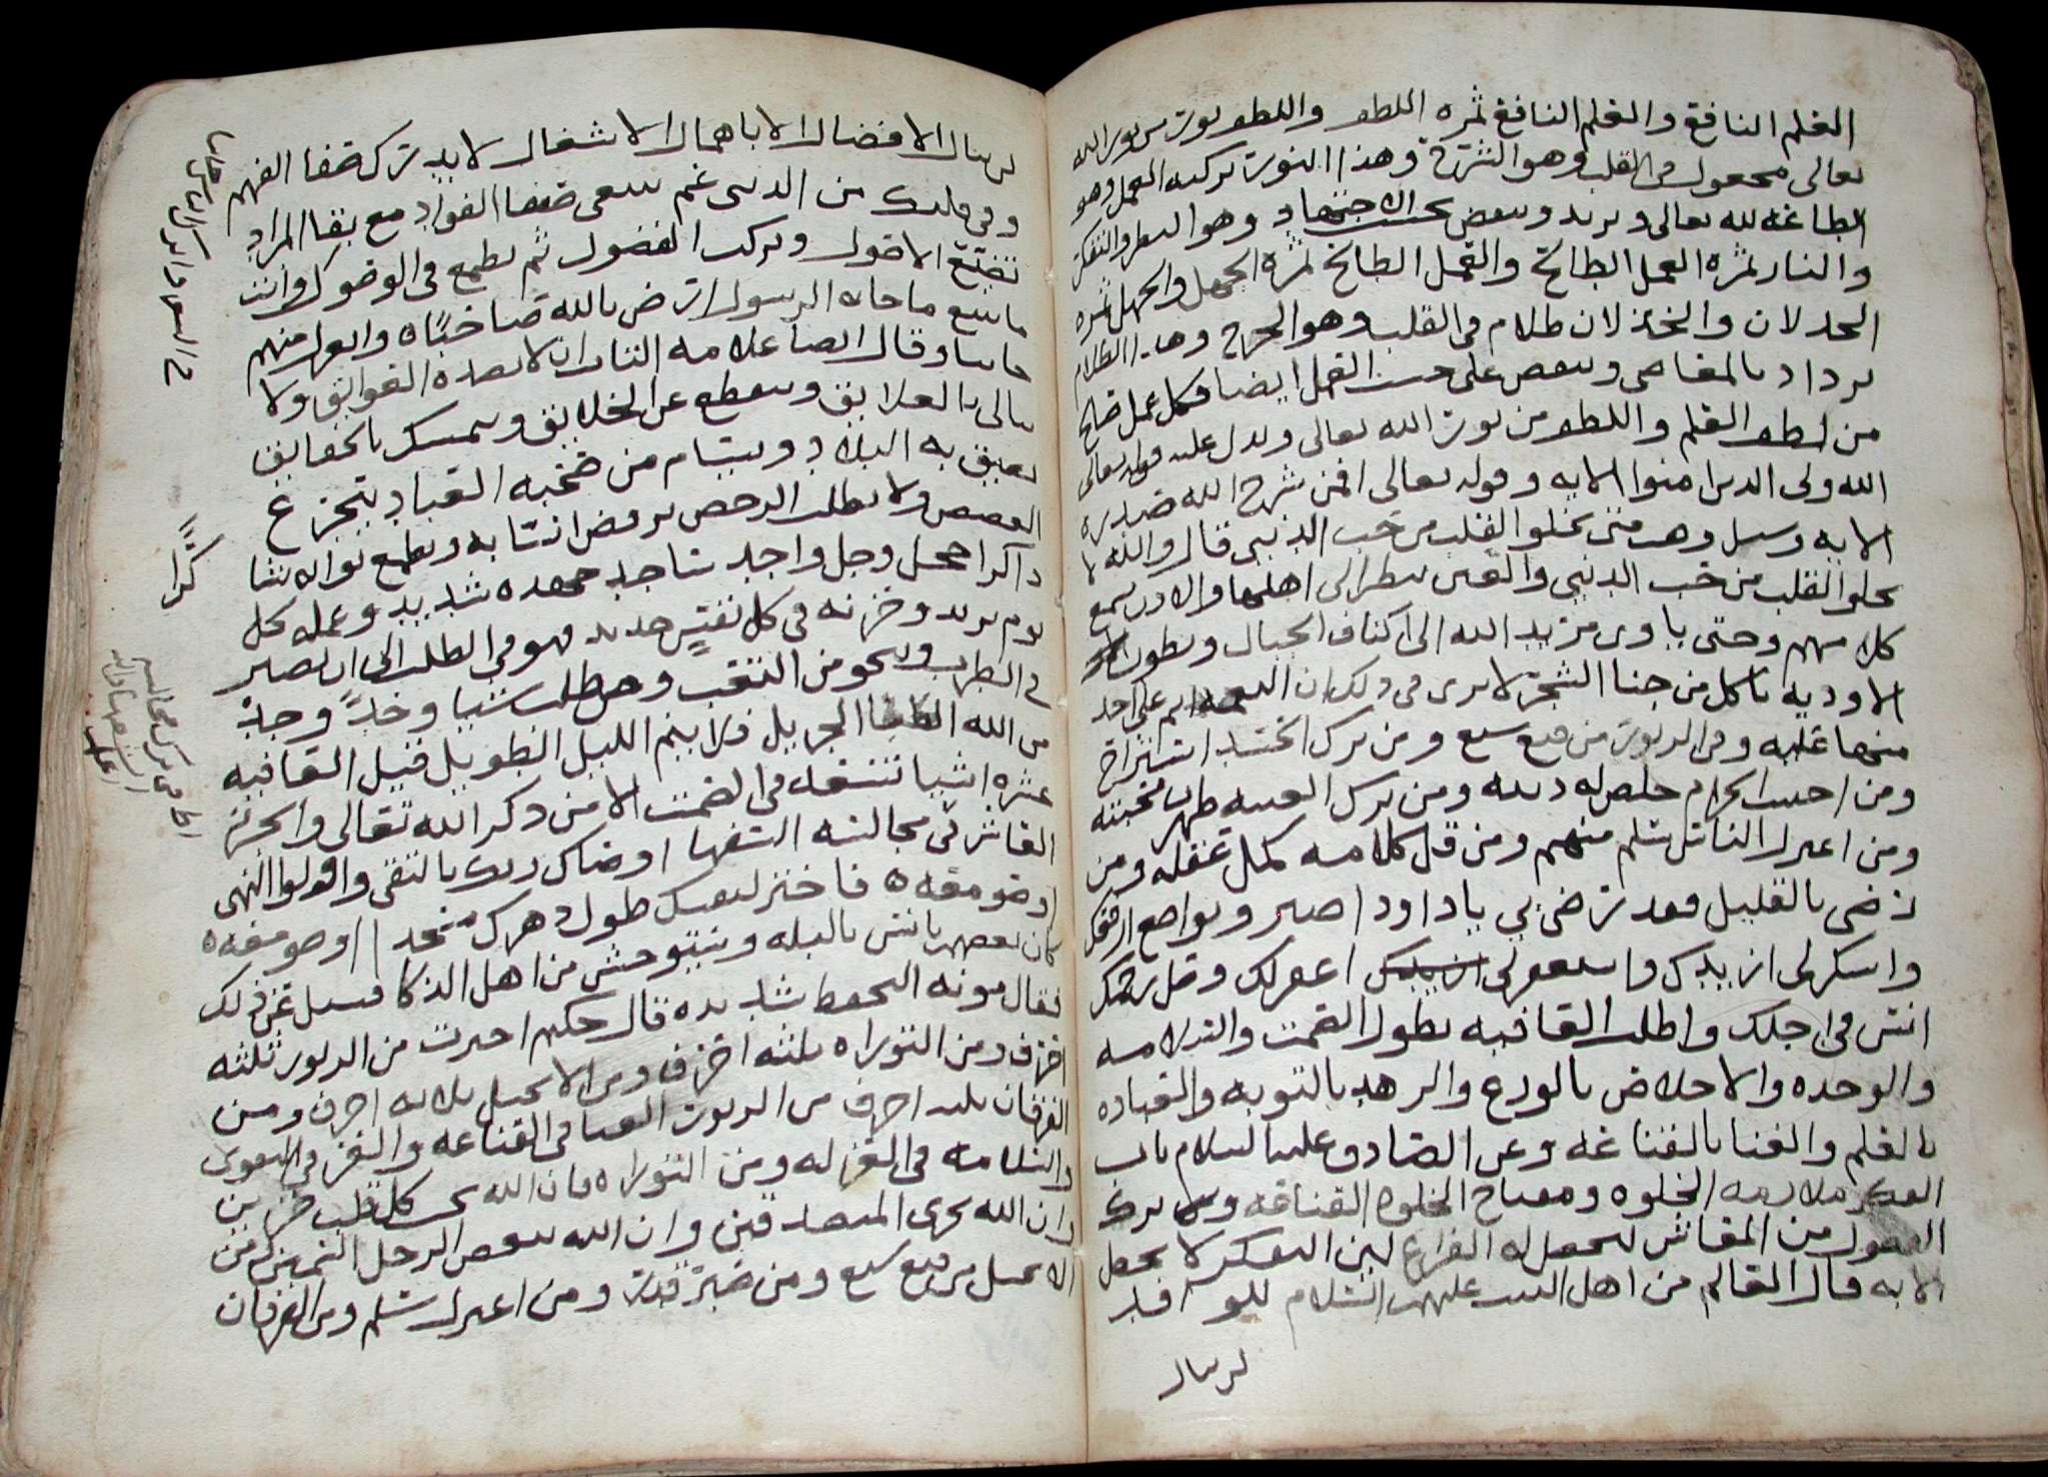 العلم النافع والعلم النافع ثمره اللطف واللطف نور من نور الله
تعالى مجعول في القلب وهو الشرح وهذا النور تركيه العمل وهو
الطاعه لله تعالى ويزيد وينقص بحسب الاجتهاد وهو النظر والتفكر
والنار ثمره العمل الطالح والعمل الطالح ثمره الجهل والجهل ثمره
الخذلان والخذلان ظلام في القلب وهو الحرج وهذا الظلام
يزداد بالمعاصي وينقص على حسب العمل ايضا فكل عمل صالح
من لطف العلم واللطف من نور الله تعالى ويدل عليه قوله تعالى
الله ولي الذين امنوا الايه وقوله تعالى افمن شرح الله صدره
الايه وسيل وهب متى يخلو القلب من حب الدنيى قال والله لا
يخلو القلب من حب الدنيى والعين تنظر الى اهلها والاذن تسمع
كلامهم وحتى ياوى مريد الله الى اكناف الجبال وبطون
الاوديه ياكل من جنا الشجر لا يرى في ذلك ان النعمه اتم على احد
منها عليه وفي الزبور من قنع شبع ومن ترك الحسد استراح
ومن اجتنب الحرام خلص له دينه ومن ترك الغيبه ظهرت محبته
ومن اعتزل الناس سلم منهم ومن قل كلامه كمل عقله ومن
رضى بالقليل فقد رضي بي يا داود اصبر وتواضع ارفعك
واشكر لي ازيدك واستغفرلي اغفرلك وصل رحمك
انس في اجلك واطلب العافيه بطول الصمت والسلامه
والوحده والاخلاص بالورع والزهد بالتوبه والعباده
بالعلم والغنا بالقناعه وعن الصادق عليه السلام باب
الفكر ملازمه الخلوه ومفتاح الخلوه القناعه وترك
الفضول من المعاش ليحصل له الفراغ لين التفكر لا يحصل
الا به قال القاسم من اهل البيت عليهم السلام للوافد
لن ينال
لن ينال الافضال الا باهمال الاشغال لا بد ترك صفا الفهم
وفي قلبك من الدنيى غم تبتغى صفا الفواد مع بقا المراد
تضيع الاصول وتركب الفضول ثم تطمع في الوصول وانت
ما تتبع ما جا به الرسول ارض بالله صاحبا ه واعتزل منهم
جانبا وقال ايضا علامه التائب ان لا تصده العوايق ولا
يبالي بالعلايق وينقطع عن الخلايق ويتمسك بالحقايق
تضيق به البلاد ويسام من صحبه العباد يتجرع
الغصص ولا يطلب الرخص يرفض انسابه ويقطع نواله
ذاكرا وجل واجد ساجد جهده شديد وعمله كل
يوم يزيد وحزنه في كل نفس جديد فهو في الطلب الى ان يصير
في الطرب وينجو من التعب ومن طلب شيا وجد وجد
من الله العطا الجزيل فلا ينم الليل الطويل قيل العافيه
عشره اشيا تسعه في الصمت الا من ذكر الله تعالى والجزء
العاشر في مجالسه السفها اوصاك ربك بالتقى واولوا النهى
اوصو معه ه فاختر لنفسك طول دهرك مسجدا او صومعه ه
كان بعضهم يانس بالبله ويستوحش من اهل الذكا فسيل عن ذلك
فقال مونه التحفظ شديده قال حكيم اخترت من الزبور ثلثه
احرف ومن التوراه ثلثه احرف ومن الانجيل ثلاثه احرف ومن
الفرقان ثلثه احرف من الزبور الغنا في القناعه والعز في التقوى
والسلامه في العزله ومن التوراه فان الله يحب كل قلب حزين
وان الله يجزى المتصدقين وان الله يبغض الرجل السمين ومن
الانجيل من قنع شبع ومن صبر قدر ومن اعتزل سلم ومن الفرقان
كذا